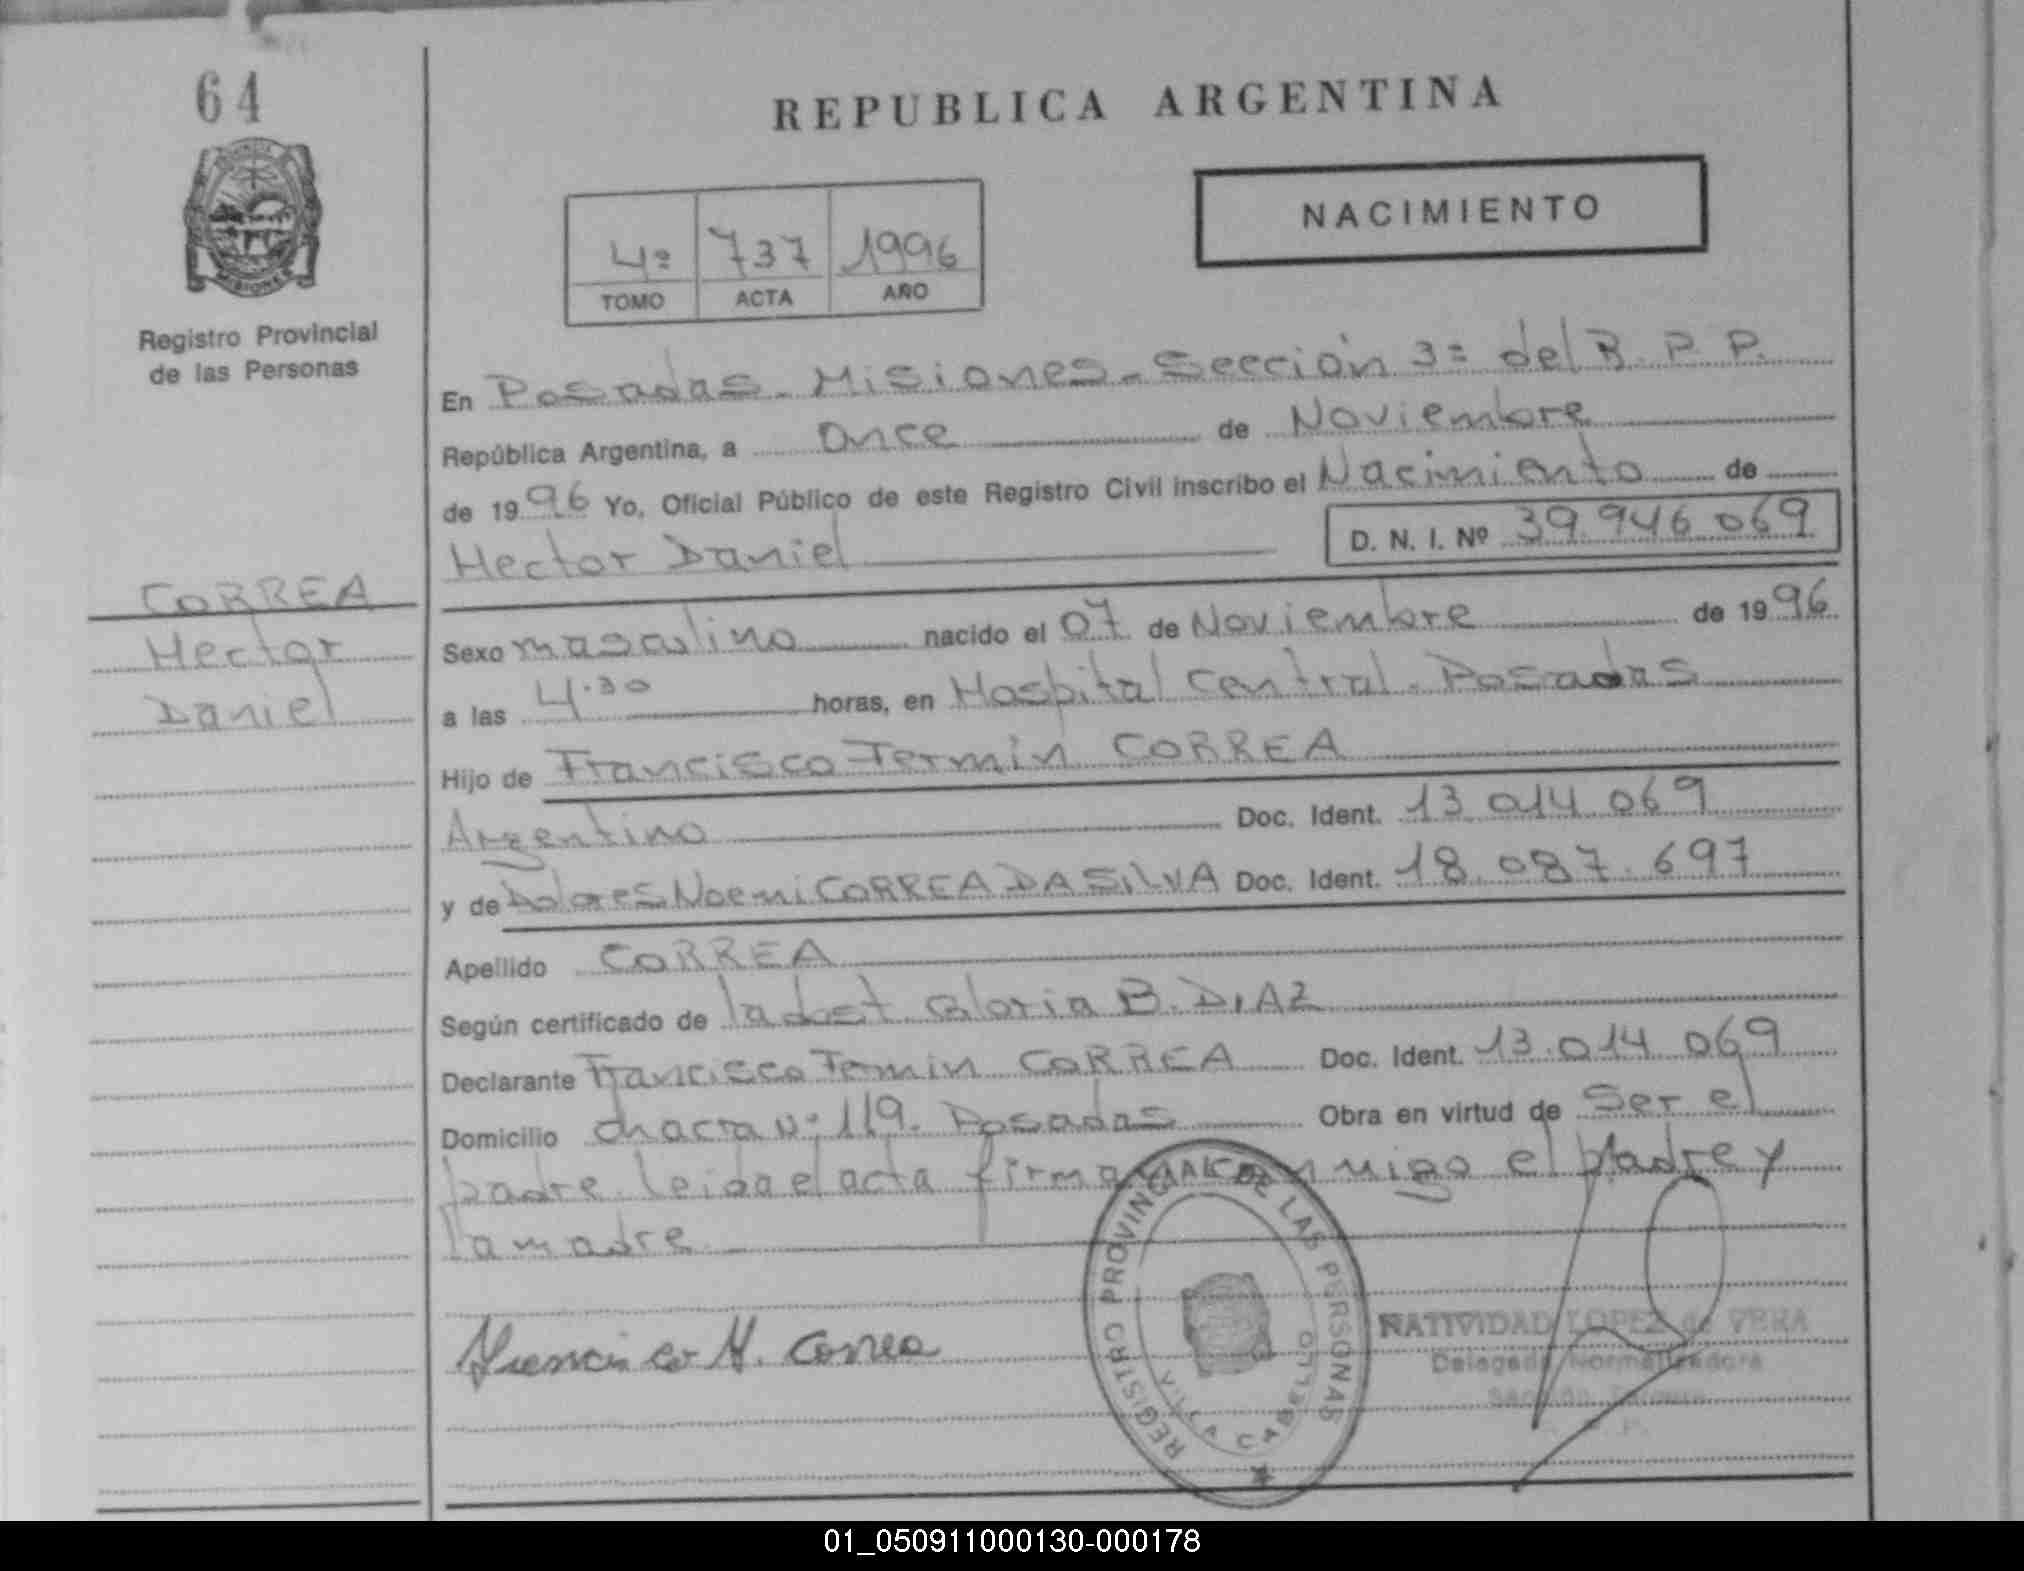 64
REPUBLICA ARGENTINA
NACIMIENTO
4º 737 1996
TOMO ACTA AÑO
Registro Provincial
de las Personas
En Posadas - Misiones - Sección 3ª del R. P. P.
República Argentina, a Once de Noviembre
de 1996 Yo, Oficial Público de este Registro Civil inscribo el Nacimiento de
Hector Daniel D. N. I. Nº 39.946.069
CORREA
Hector
Daniel
Sexo masculino nacido el 07 de Noviembre de 1996
a las 4.30 horas, en Hospital Central. Posadas
Hijo de Francisco Fermín CORREA
Argentino Doc. Ident. 13.014.069
y de Dolores Noemi CORREA DA SILVA Doc. Ident. 18.087.697
Apellido CORREA
Según certificado de la obst. Gloria B. DIAZ
Declarante Francisco Fermin CORREA Doc. Ident. 13.014.069
Domicilio chacra Nº 119. Posadas Obra en virtud de Ser el
padre. leida el acta firman conmigo el padre y
la madre
REGISTRO PROVINCIAL DE LAS PERSONAS
VILLA CABELLO
Correa
NATIVIDAD LOPEZ de VERA
Delegada Normalizadora
01_050911000130-000178